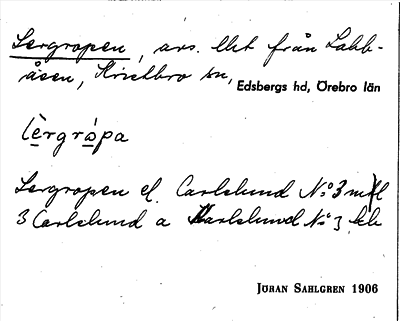 Lergropen, avs. lht från Labb-
åsen, Kvistbro sn, Edsbergs hd, Örebro län
lèrgrópa
Lergropen el. Carlslund No 3
3 Carlslund a Karlslund No 3
JÖRAN SAHLGREN 1906